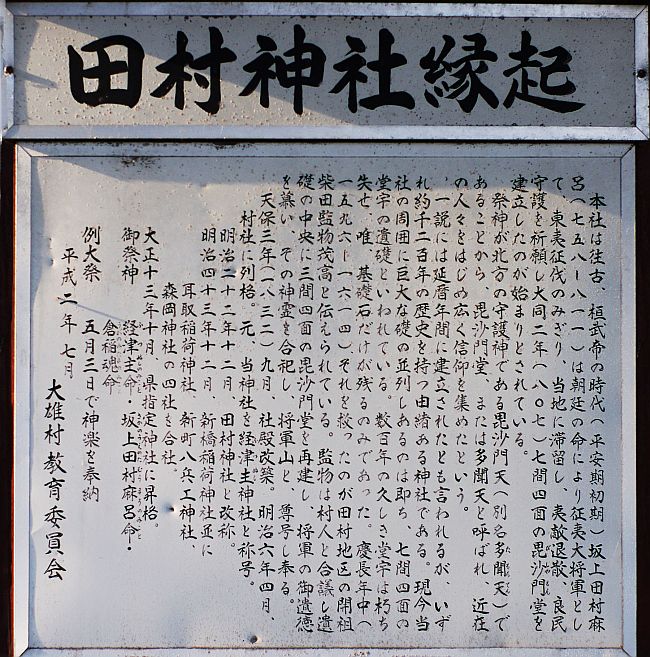 田村神社縁起
本社は往古、桓武帝の時代（平安期初期）坂上田村麻
呂（七五八―八一一）は朝廷の命により征夷大将軍とし
て、東夷征伐のみぎり、当地に滞留し、夷敵退散、良民
守護を祈願し大同二年（八〇七）七間四面の毘沙門堂を
建立したのが始まりとされている。
祭神が北方の守護神である毘沙門天（別名多聞天）で
あることから、毘沙門堂、または多聞天と呼ばれ、近在
の人々をはじめ広く信仰を集めたという。
、一説には延暦年間に建立されたとも言われるが、いず
れ約千二百年の歴史を持つ由緒ある神社である。現今当
社の周囲に巨大な礎の並列しあるのは即ち、七間四面の
堂宇の遺礎といわれている。数百年の久しき堂宇は朽ち
失せ、唯、基礎石だけが残るのみであった。慶長年中（
一五九六―一六一四）それを救ったのが田村地区の開祖
柴田監物茂高と伝えられている。監物は村人と合議し遺
礎の中央に三間四面の毘沙門堂を再建し、将軍の御遺徳
を慕い、その神霊を合祀し、将軍山と、尊号し奉る。
天保三年（一八三二）九月、社殿改築。明治六年四月、
村社に列格。元、当神社を経津主神社と称号。
明治二十二年十二月、田村神社と改称。
明治四十三年十二月　新橋稲荷神社並に
耳取稲荷神社、新町八兵工神社、
森岡神社の四社を合社。
大正十三年十月　県指定神社に昇格。
御祭神　経津主命　坂上田村麻呂命・
倉稲魂命
例大祭　五月三日で神楽を奉納
平成二年七月
大雄村教育委員会